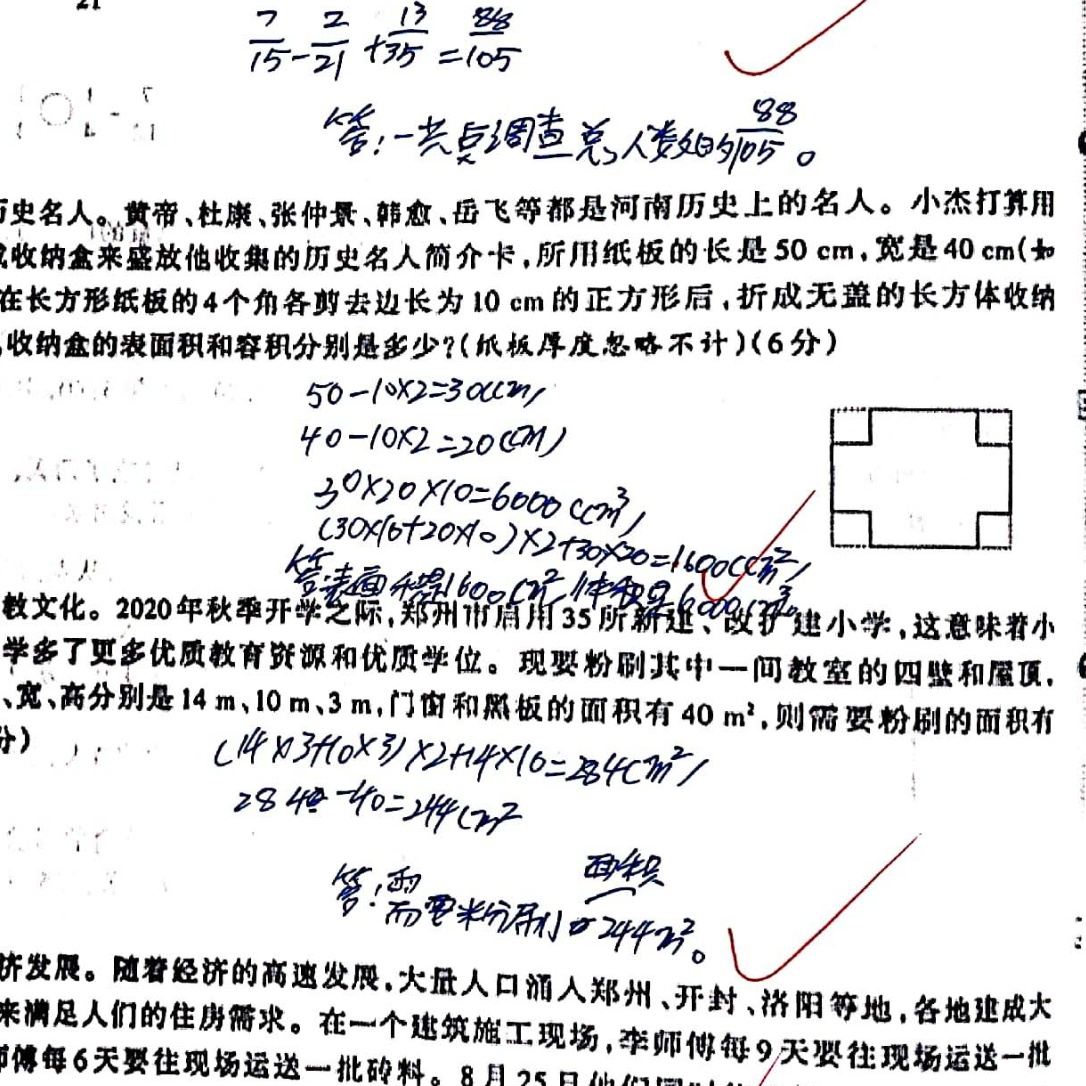 21
7/15-2/21+13/35=88/105
答:一共是调查总人数的88/105。
历史名人。黄帝、杜康、张仲景、韩愈、岳飞等都是河南历史上的名人。小杰打算用
成收纳盒来盛放他收集的历史名人简介卡,所用纸板的长是50 cm,宽是40 cm(如
在长方形纸板的4个角各剪去边长为10 cm的正方形后,折成无盖的长方体收纳
,收纳盒的表面积和容积分别是多少?(纸板厚度忽略不计)(6分)
50-10×2=30(cm)
40-10×2=20(cm)
30×20×10=6000(cm³)
(30×10+20×10)×2+30×20=1600(cm²)
答:表面积是1600cm²,体积是6000cm³。
教文化。2020年秋季开学之际,郑州市启用35所新建、改扩建小学,这意味着小
学多了更多优质教育资源和优质学位。现要粉刷其中一间教室的四壁和屋顶,
、宽、高分别是14 m、10 m、3 m,门窗和黑板的面积有40 m²,则需要粉刷的面积有
分)
(14×3+10×3)×2+14×10=284(m²)
284-40=244(m²
答:需要粉刷面积244m²。
济发展。随着经济的高速发展,大量人口涌入郑州、开封、洛阳等地,各地建成大
来满足人们的住房需求。在一个建筑施工现场,李师傅每9天要往现场运送一批
师傅每6天要往现场运送一批砖料。8月25日他们同时